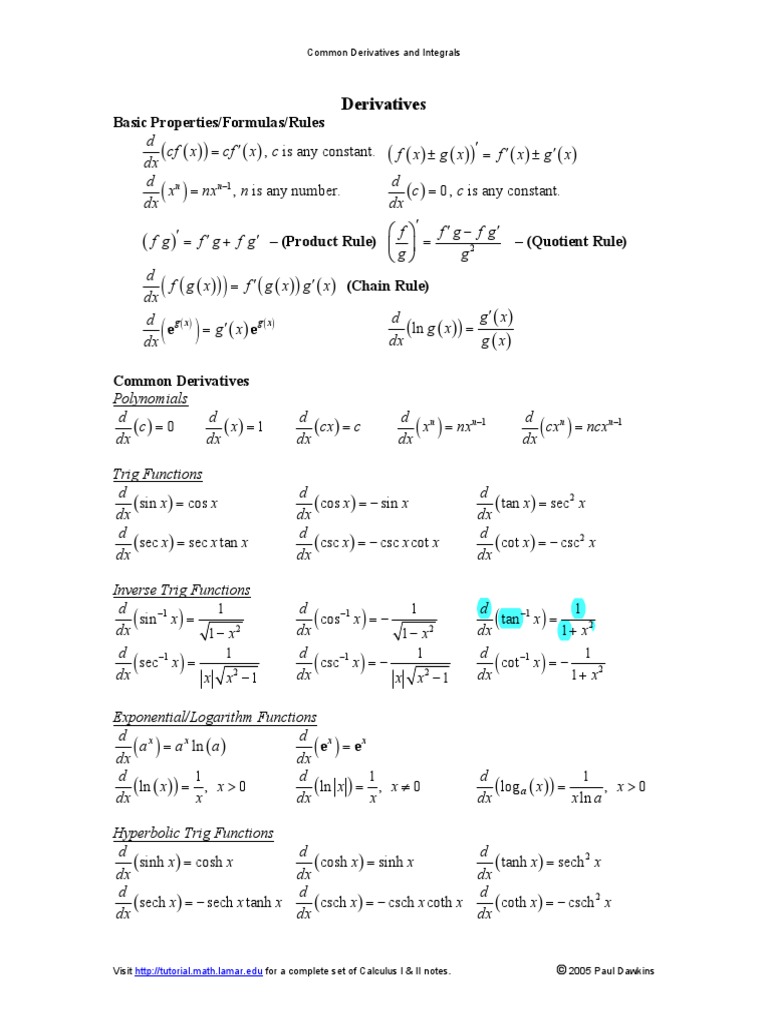 Common Derivatives and Integrals
Derivatives
Basic Properties/Formulas/Rules
d/dx (cf(x)) = cf′(x), c is any constant. (f(x) ± g(x))′ = f′(x) ± g′(x)
d/dx (xⁿ) = nxⁿ⁻¹, n is any number. d/dx (c) = 0, c is any constant.
(f g)′ = f′ g + f g′ – (Product Rule) (f/g)′ = (f′ g − f g′)/g² – (Quotient Rule)
d/dx (f(g(x))) = f′(g(x)) g′(x) (Chain Rule)
d/dx (e^g(x)) = g′(x) e^g(x) d/dx (ln g(x)) = g′(x)/g(x)
Common Derivatives
Polynomials
d/dx (c) = 0 d/dx (x) = 1 d/dx (cx) = c d/dx (xⁿ) = nxⁿ⁻¹ d/dx (cxⁿ) = ncxⁿ⁻¹
Trig Functions
d/dx (sin x) = cos x d/dx (cos x) = − sin x d/dx (tan x) = sec² x
d/dx (sec x) = sec x tan x d/dx (csc x) = − csc x cot x d/dx (cot x) = − csc² x
Inverse Trig Functions
d/dx (sin⁻¹ x) = 1/√(1 − x²) d/dx (cos⁻¹ x) = − 1/√(1 − x²) d/dx (tan⁻¹ x) = 1/(1 + x²)
d/dx (sec⁻¹ x) = 1/(|x|√(x² − 1)) d/dx (csc⁻¹ x) = − 1/(|x|√(x² − 1)) d/dx (cot⁻¹ x) = − 1/(1 + x²)
Exponential/Logarithm Functions
d/dx (aˣ) = aˣ ln(a) d/dx (eˣ) = eˣ
d/dx (ln(x)) = 1/x, x > 0 d/dx (ln|x|) = 1/x, x ≠ 0 d/dx (logₐ(x)) = 1/(x ln a), x > 0
Hyperbolic Trig Functions
d/dx (sinh x) = cosh x d/dx (cosh x) = sinh x d/dx (tanh x) = sech² x
d/dx (sech x) = − sech x tanh x d/dx (csch x) = − csch x coth x d/dx (coth x) = − csch² x
Visit http://tutorial.math.lamar.edu for a complete set of Calculus I & II notes. © 2005 Paul Dawkins